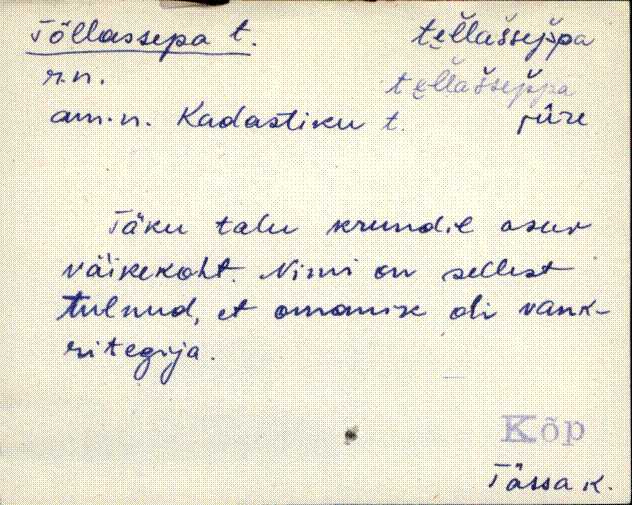 Tõllassepa t. te̮l̆lašsep̆pa
r.n. te̮l̆lašsep̆pa
am.n. Kadastiku t. jüre
Täku talu krundil asuv
väikekoht. Nimi on sellest
tulnud, et omanik oli vank-
ritegija.
Kõp
Tässa k.